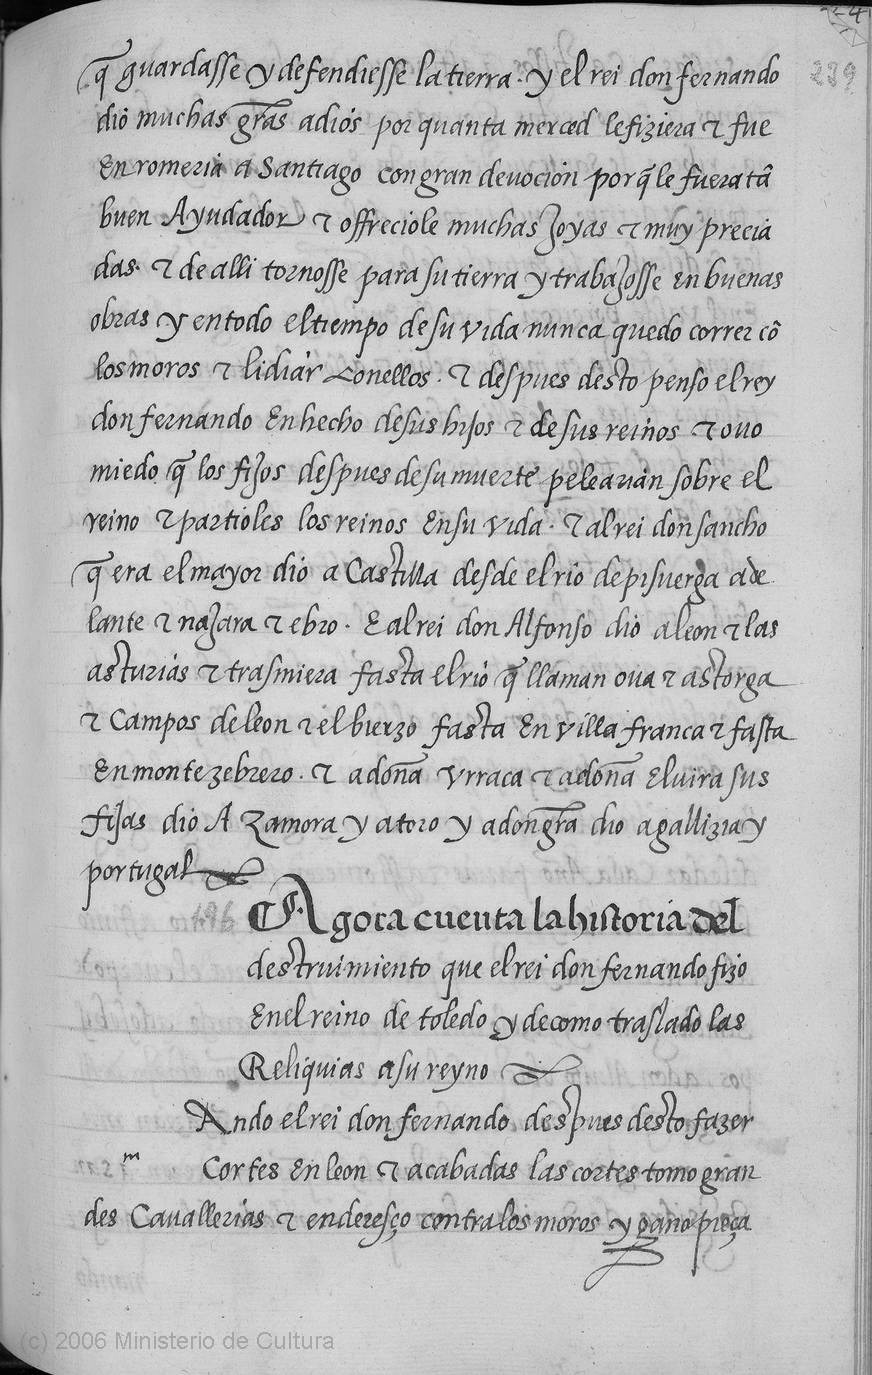 239
q̃ guardasse y defendiesse la tierra. y el rei don fernando
dio muchas gr̃as adios por quanta merced lefiziera τ fue
En romeria a Santiago con gran devocion por q̃ le fuera tã
buen Ayudador τ offreciole muchas Joyas τ muy precia
das. τ de alli tornosse para su tierra y trabaJosse en buenas
obras y en todo el tiempo de su vida nunca quedo correr cõ
los moros τ lidiar con ellos. τ despues desto penso el rey
don fernando En hecho de sus hijos τ de sus reinos τ ovo
miedo q̃ los fiJos despues de su muerte pelearian sobre el
reino τ partioles los reinos En su vida. τ al rei don sancho
q̃ era el mayor dio a Castilla desde el rio de pisuerga ade
lante τ naJara τ ebro. E al rei don Alfonso dio a leon τ las
asturias τ trasmiera fasta el rio q̃ llaman ova τ astorga
τ Campos de leon τ el bierzo fasta En villa franca τ fasta
En monte zebrero. τ a doña Vrraca τ a doña Eluira sus
fijas dio A Zamora y a toro y a don gr̃a dio a gallizia y
portugal
496
Agora cuenta la historia del
destruimiento que el rei don fernando fizo
En el reino de toledo y de como traslado las
Reliquias a su reyno
Ando el rei don fernando despues desto fazer
m Cortes En leon τ acabadas las cortes tomo gran
des Cavallerias τ enderesço contra los moros y gano pieça
(c) 2006 Ministerio de Cultura